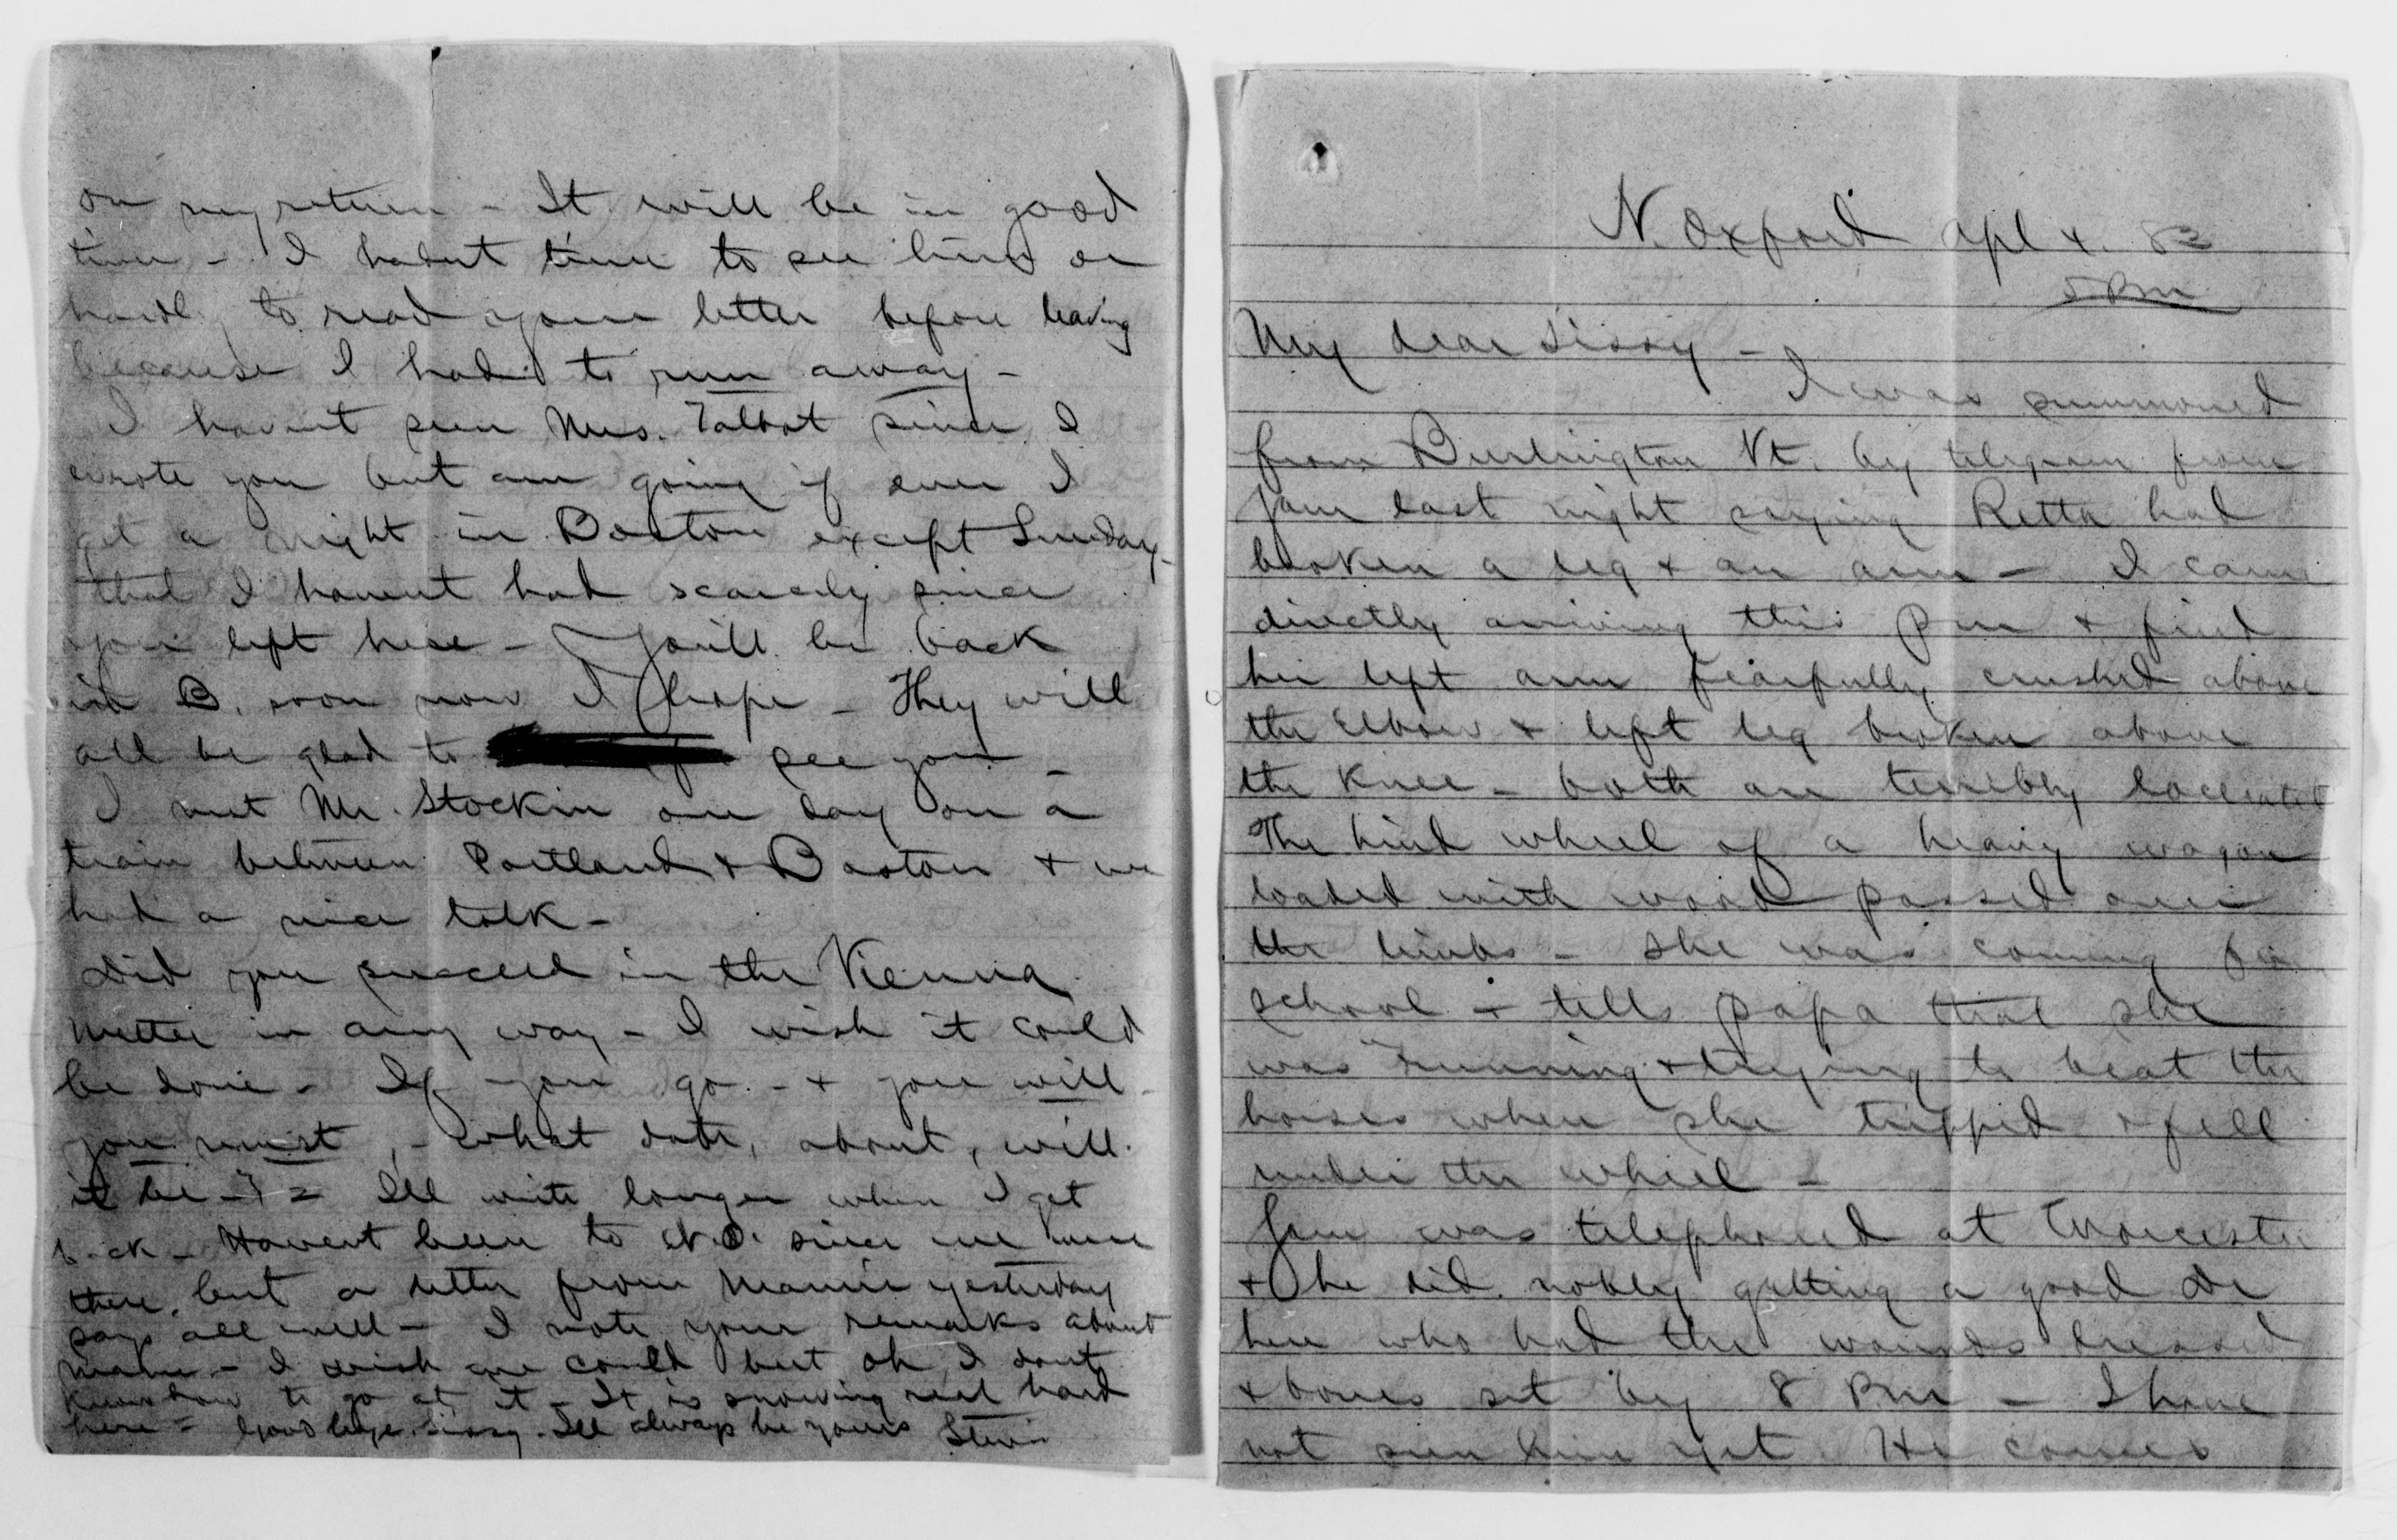 on my return - It will be in good
time - I hadnt time to see him or
hardly to read your letter before leaving
because I had to run away -
I havent seen Mrs. Talbot since I
wrote you but am going if ever I
get a night in Boston except Sunday -
that I havent had scarcely since
you left here - You'll be back
in B. soon now I hope - They will
all be glad to see you -
I met Mr. Stockin one day on a
train between Portland & Boston & we
had a nice talk -
Did you succeed in the Vienna
matter in any way - I wish it could
be done - If you go - & you will -
you must, - what date, about, will
it be - ? = Ill write longer when I get
back - Havent been to N.O. since we were
there, but a letter from Mamie yesterday
says all well - I note your remarks about
- I wish we could but oh I dont
know how to go at it - It is snowing real hard
here = Good bye Sissy. Ill always be yours Stevie
N. Oxford Apl 4. 82
5 Pm
My dear Sissy -
I was summoned
from Burlington Vt. by telegram from
Sam last night saying Retta had
broken a leg & an arm - I came
directly arriving this Pm & find
her left arm fearfully crushed above
the Elbow & left leg broken above
the Knee - both are terribly lacerated
The hind wheel of a heavy wagon
loaded with wood passed over
the limbs - She was coming from
school & tells papa that she
was running & trying to beat the
horses when she tripped & fell
under the wheel -
Sam was telephoned at Worcester
& he did nobly getting a good Dr
here who had the wounds dressed
& bones set by 8 Pm - I have
not seen him yet. He comes